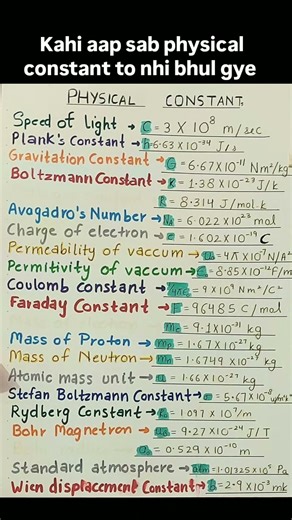 Kahi aap sab physical
constant to nhi bhul gye
PHYSICAL CONSTANT.
Speed of light → C = 3 X 10⁸ m/sec
Plank's Constant → h=6.63 X10⁻³⁴ J/s
Gravitation Constant → G = 6.67X10⁻¹¹ Nm²/kg²
Boltzmann Constant → K = 1.38 X10⁻²³ J/k
R = 8.314 J/mol.k
Avogadro's Number → NA = 6.022 X10²³ mol
Charge of electron → e = 1.602X10⁻¹⁹ C
Permeability of vaccum → = 4π X10⁻⁷ N/A²
Permitivity of vaccum → = 8.85 X10⁻¹² F/m
Coulomb constant → = 9 X10⁹ Nm²/C²
Faraday Constant → F = 96485 C/mol
me = 9.1X10⁻³¹ kg
Mass of Proton → mp = 1.67 X10⁻²⁷ kg
Mass of Neutron → mn = 1.6749 X10⁻²⁷ kg
Atomic mass unit → u = 1.66 X10⁻²⁷ kg
Stefan Boltzmann Constant → σ = 5.67 X10⁻⁸
Rydberg Constant → = 1.097 X10⁷/m
Bohr Magnetron → = 9.27 X10⁻²⁴ J/T
= 0.529 X10⁻¹⁰ m
Standard atmosphere → atm = 1.01325 X10⁵ Pa
Wien displacement Constant → b = 2.9 X10⁻³ mk